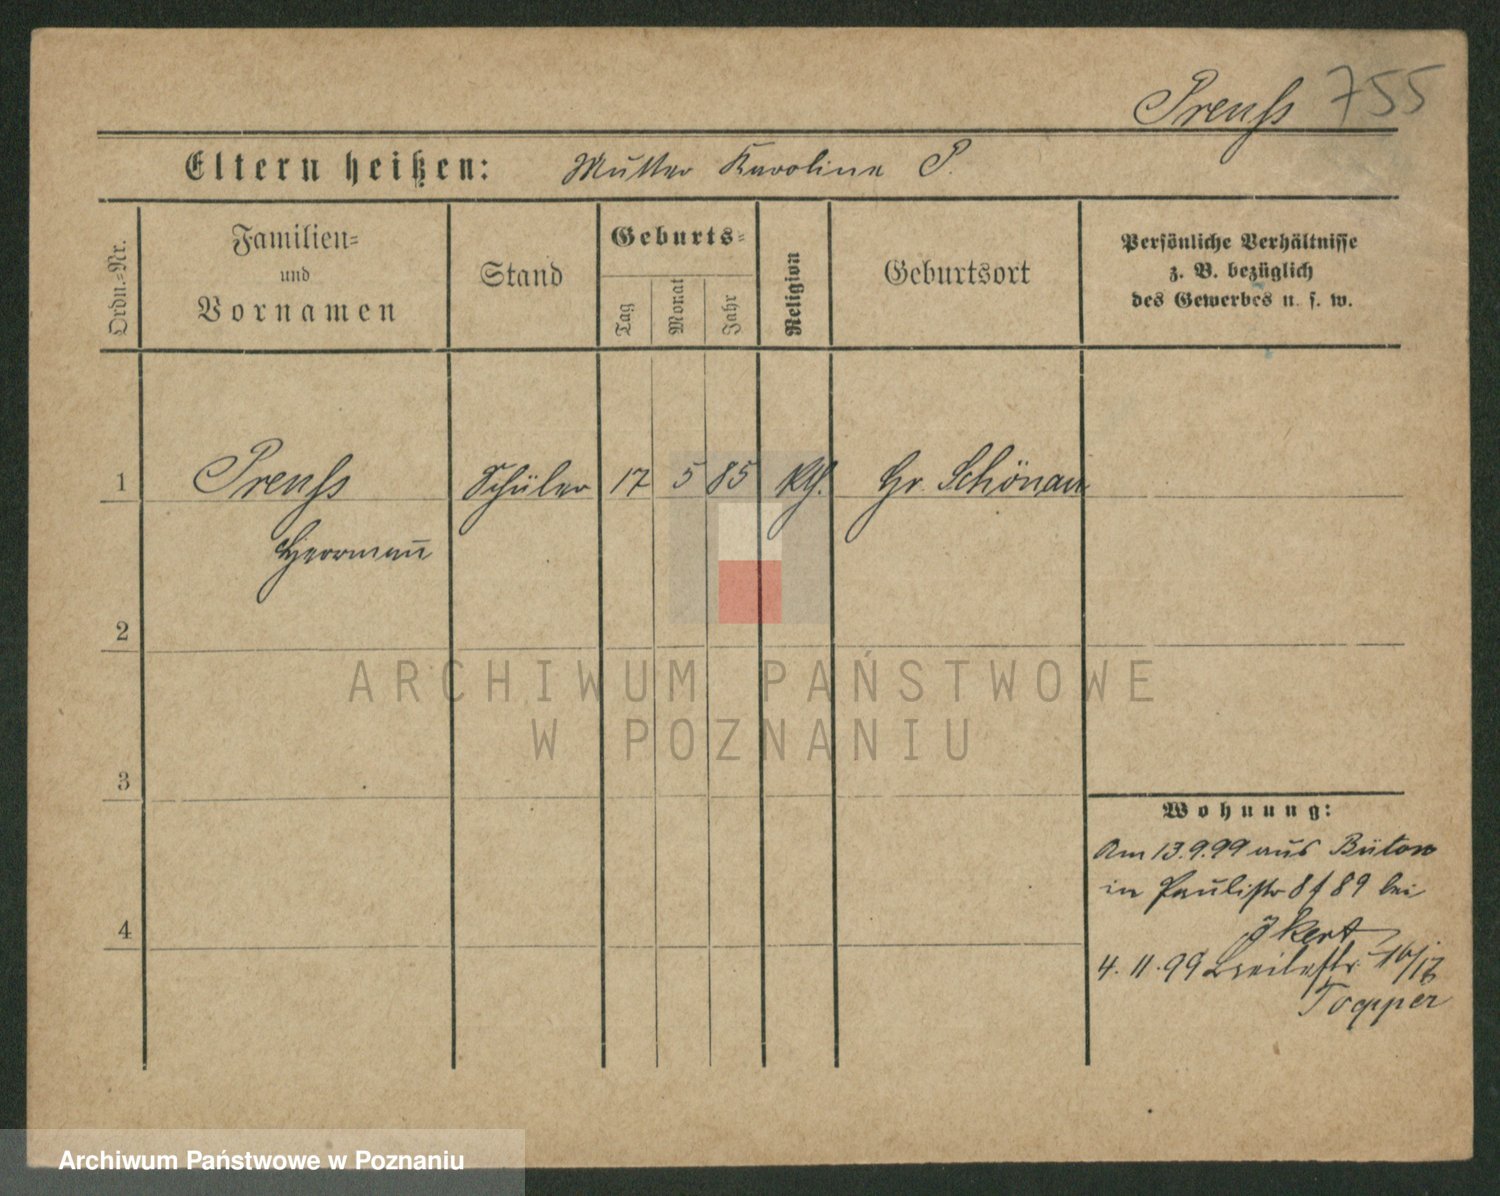 Preuſs 755
Eltern heißen: Mutter Karoline P.
Ordn.-Nr.
Familien-
und
Vornamen
Stand
Geburts-
Tag
Monat
Jahr
Religion
Geburtsort
Persönliche Verhältnisse
z. B. bezüglich
des Gewerbes u. s. w.
1 Preuſs Schüler 17 5 85 Kth. Gr. Schönau
Herrman̄
2
ARCHIWUM PAŃSTWOWE
W POZNANIU
3
Wohnung:
Am 13.9.99 aus Büton
in Paulistr 8 f 89 bei
4
4. 11. 99 Breitestr. 16/17
Topper
Archiwum Państwowe w Poznaniu